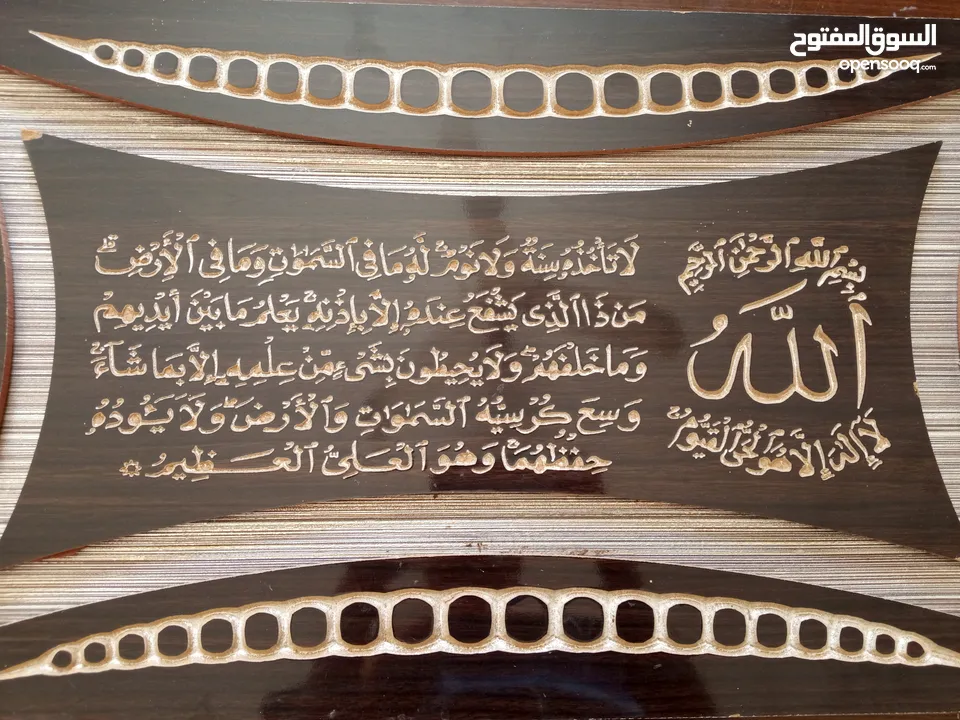 السوق المفتوح
opensooq.com
بِسْمِ ٱللَّهِ ٱلرَّحْمَٰنِ ٱلرَّحِيمِ
ٱللَّهُ
لَآ إِلَٰهَ إِلَّا هُوَ ٱلْحَىُّ ٱلْقَيُّومُ ۚ
لَا تَأْخُذُهُۥ سِنَةٌ وَلَا نَوْمٌ ۚ لَّهُۥ مَا فِى ٱلسَّمَٰوَٰتِ وَمَا فِى ٱلْأَرْضِ ۗ
مَن ذَا ٱلَّذِى يَشْفَعُ عِندَهُۥٓ إِلَّا بِإِذْنِهِۦ ۚ يَعْلَمُ مَا بَيْنَ أَيْدِيهِمْ
وَمَا خَلْفَهُمْ ۖ وَلَا يُحِيطُونَ بِشَىْءٍ مِّنْ عِلْمِهِۦٓ إِلَّا بِمَا شَآءَ ۚ
وَسِعَ كُرْسِيُّهُ ٱلسَّمَٰوَٰتِ وَٱلْأَرْضَ ۖ وَلَا يَـُٔودُهُۥ
حِفْظُهُمَا ۚ وَهُوَ ٱلْعَلِىُّ ٱلْعَظِيمُ ۞